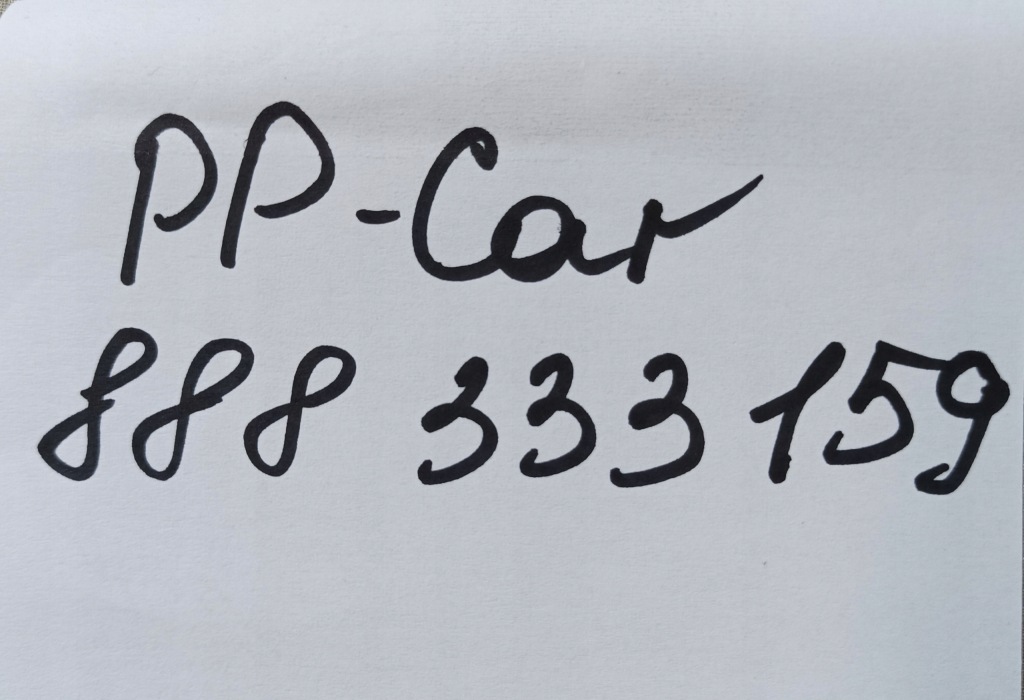 PP-Car
888 333 159